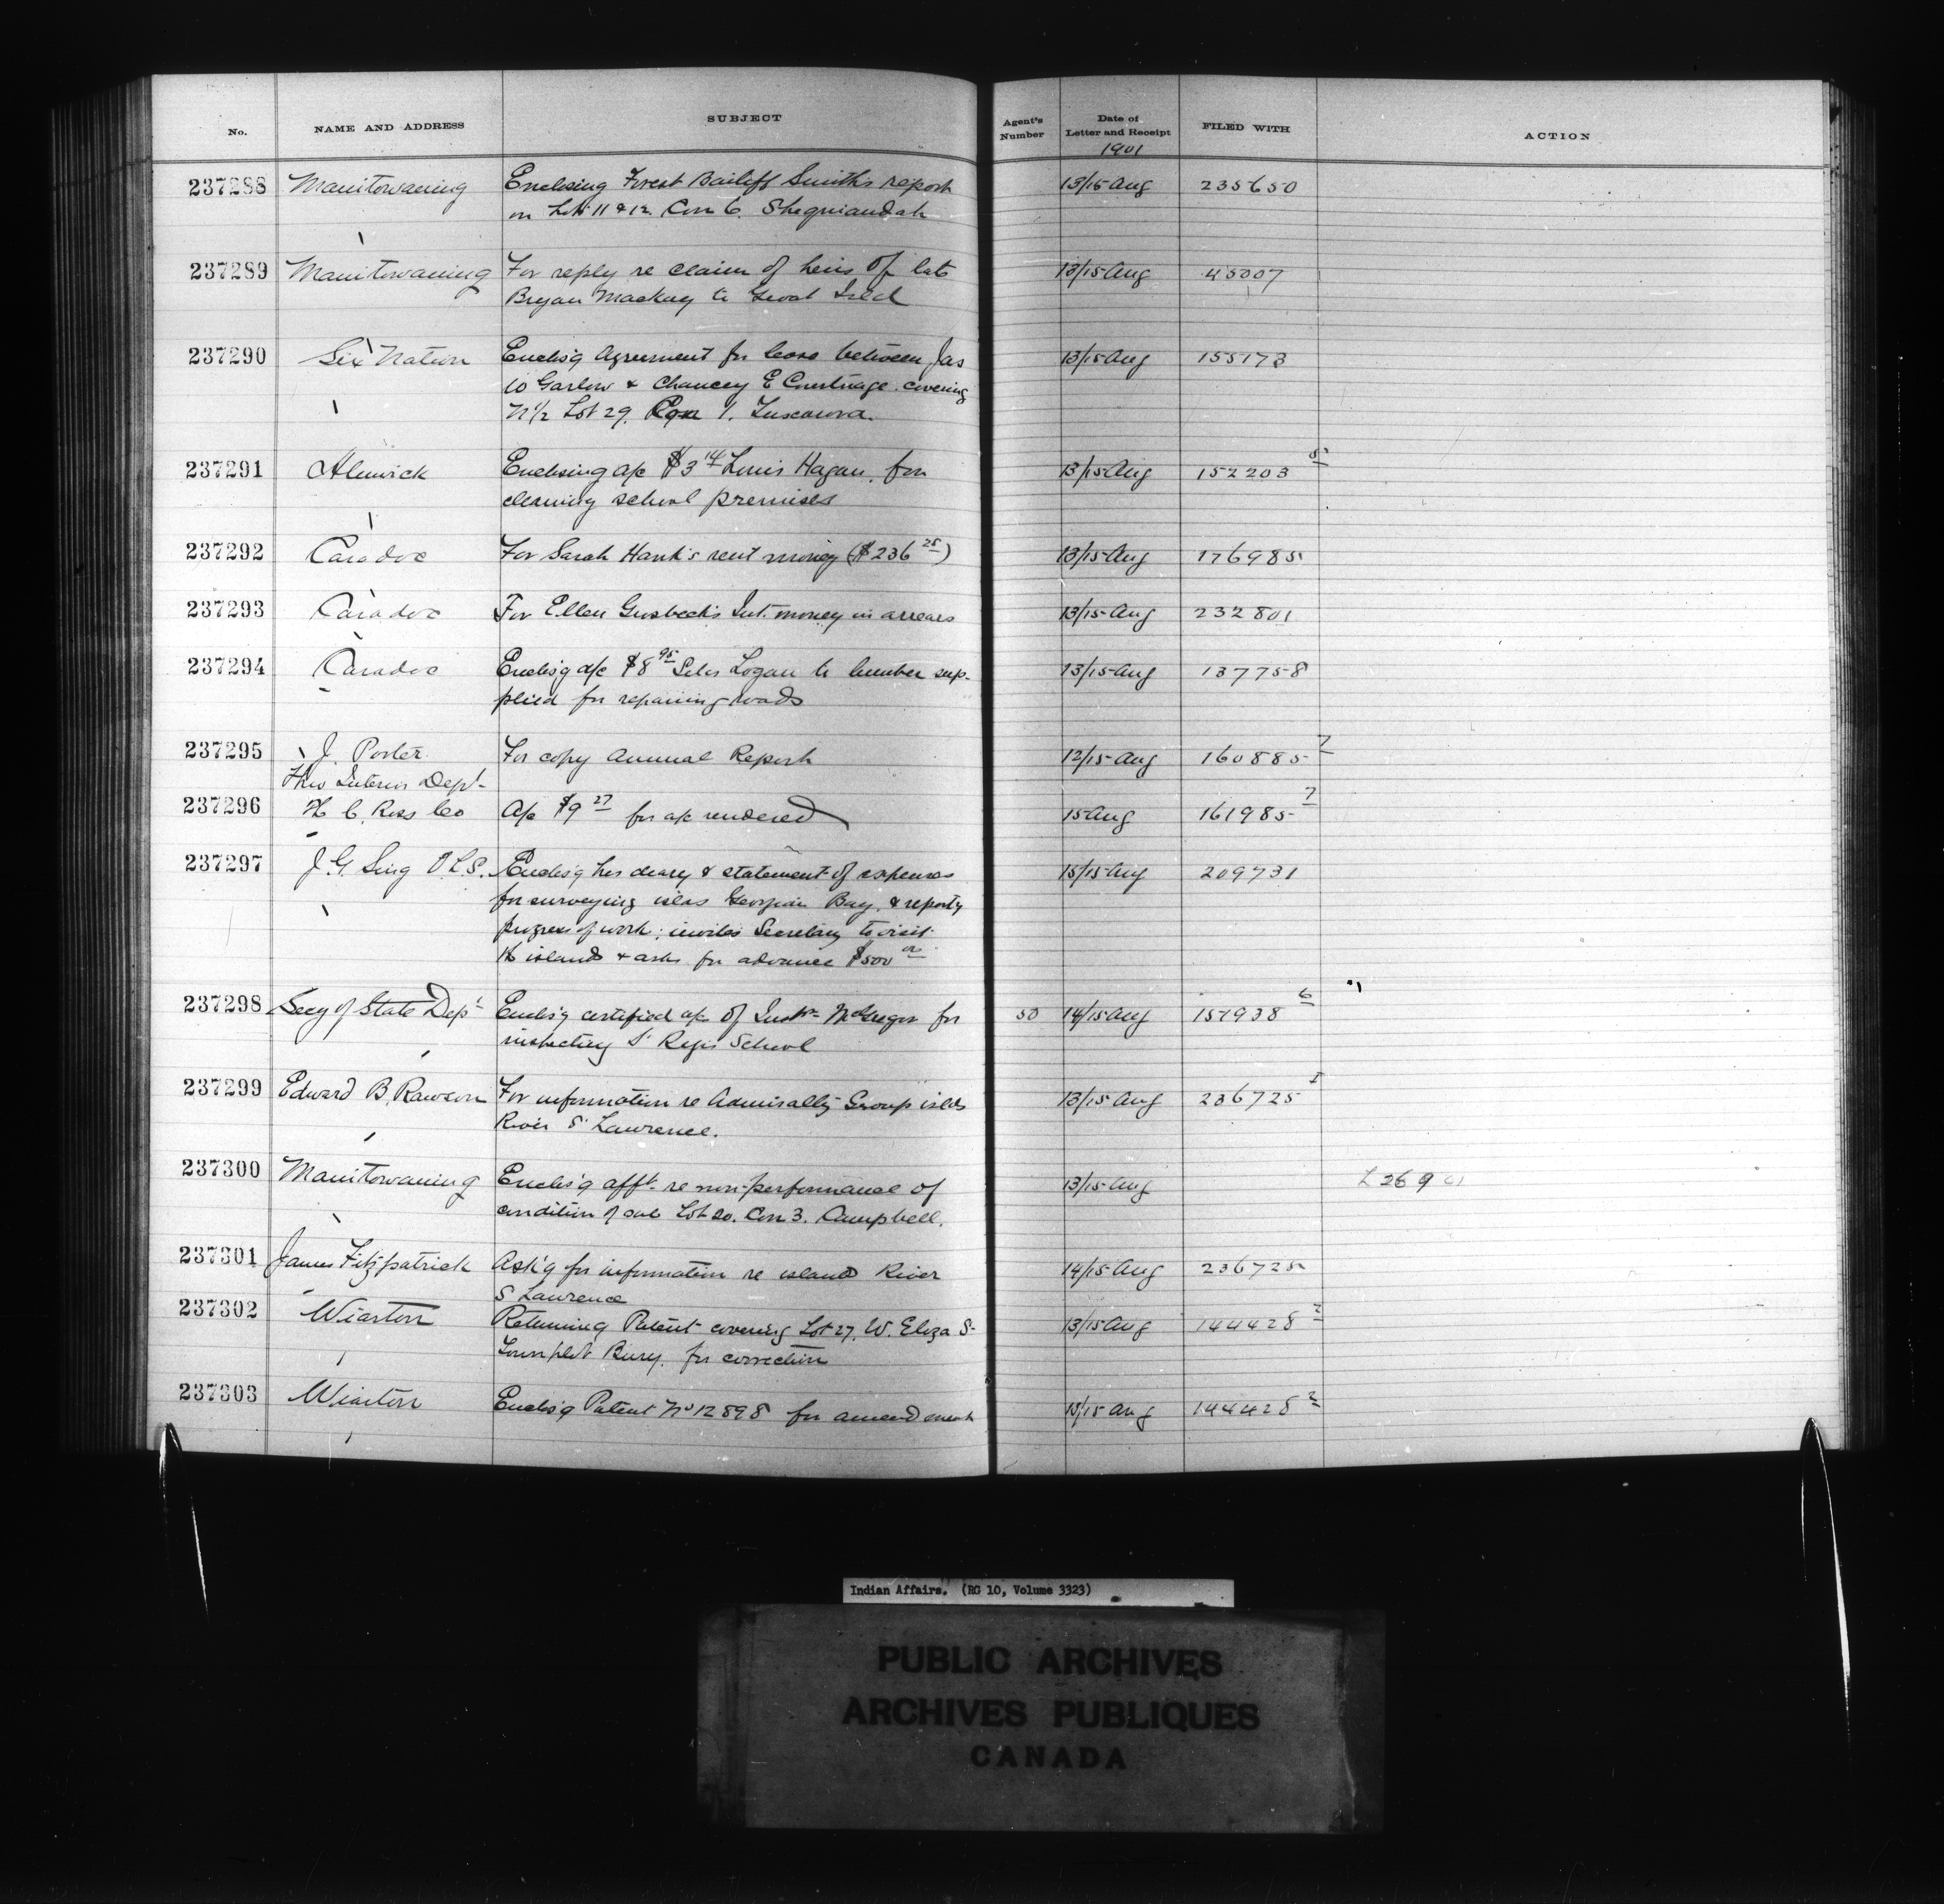 No. NAME AND ADDRESS SUBJECT Agent's Number Date of Letter and Receipt FILED WITH ACTION
1901
237288 Manitowaning Enclosing Forest Bailiff Smith's report 13/15 Aug 235650
on Lots 11 & 12 Con 6. Sheguiandah
237289 Manitowaning For reply re claim of heirs of late 13/15 Aug 45007
Bryan Mackay to Great Isld
237290 Six Nation Enclos'g Agreement for lease between Jas 13/15 Aug 155173
W Garlow & Chancey E covering
N 1/2 Lot 29. Con 1. Tuscarora.
237291 Alnwick Enclosing a/c $3 14 Louis Hagan, for 13/15 Aug 152203 5
cleaning school premises
237292 Caradoc For Sarah Hank's rent money ($236 25) 13/15 Aug 176985
237293 Caradoc For Ellen Grosbeck's Int. money in arrears 13/15 Aug 232801
237294 Caradoc Enclos'g a/c $8 95 Silas Logan to lumber sup- 13/15 Aug 137758
plied for repairing roads
237295 J. Porter For copy Annual Report 12/15 Aug 160885 7
Thro Interior Dept
237296 H C. Ross Co A/c $9 27 for a/c rendered 15 Aug 161985 7
237297 J. G. Sing O.L.S. Enclos'g his diary & statement of expenses 15/15 Aug 209731
for surveying islds Georgian Bay, & reports
progress of work; invites Secretary to visit
the islands & asks for advance $500 00
237298 Secy of State Dept Enclos'g certified a/c of Instr McGregor for 50 14/15 Aug 157938 6
inspecting St Regis School
237299 Edward B. Rawson For information re Admiralty Group islds 13/15 Aug 236725 1
River St Lawrence.
237300 Manitowaning Enclos'g afft re non-performance of 13/15 Aug L 26 9 01
condition of sale Lot 20. Con 3. Campbell.
237301 James Fitzpatrick Ask'g for information re island River 14/15 Aug 236725
St Lawrence
237302 Wiarton Returning Patent covering Lot 27, W. Eliza St 13/15 Aug 144428 2
Townplot Bury. for correction
237303 Wiarton Enclos'g Patent No 12898 for amendment 13/15 Aug 144428 2
Indian Affairs. (RG 10, Volume 3323)
PUBLIC ARCHIVES
ARCHIVES PUBLIQUES
CANADA